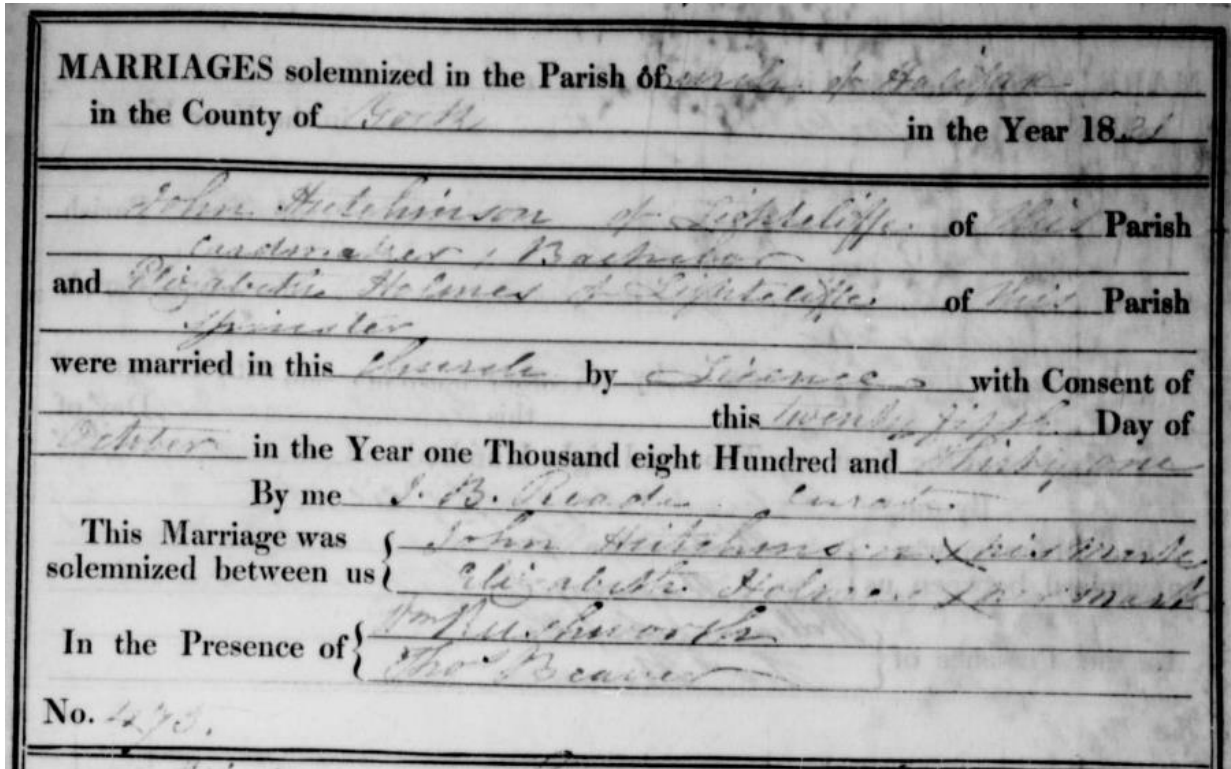 MARRIAGES solemnized in the Parish of Church of Halifax
in the County of York in the Year 1831
John Hutchinson of Lightcliffe of this Parish
Cardmaker, Bachelor
and Elizabeth Holmes of Lightcliffe of this Parish
Spinster
were married in this Church by Licence with Consent of
this twenty fifth Day of
October in the Year one Thousand eight Hundred and thirty one
By me J. B. Reade Curate
This Marriage was solemnized between us { John Hutchinson X his mark
Elizabeth Holmes X her mark
In the Presence of { Wm Rushworth
Thos Beaver
No. 473.